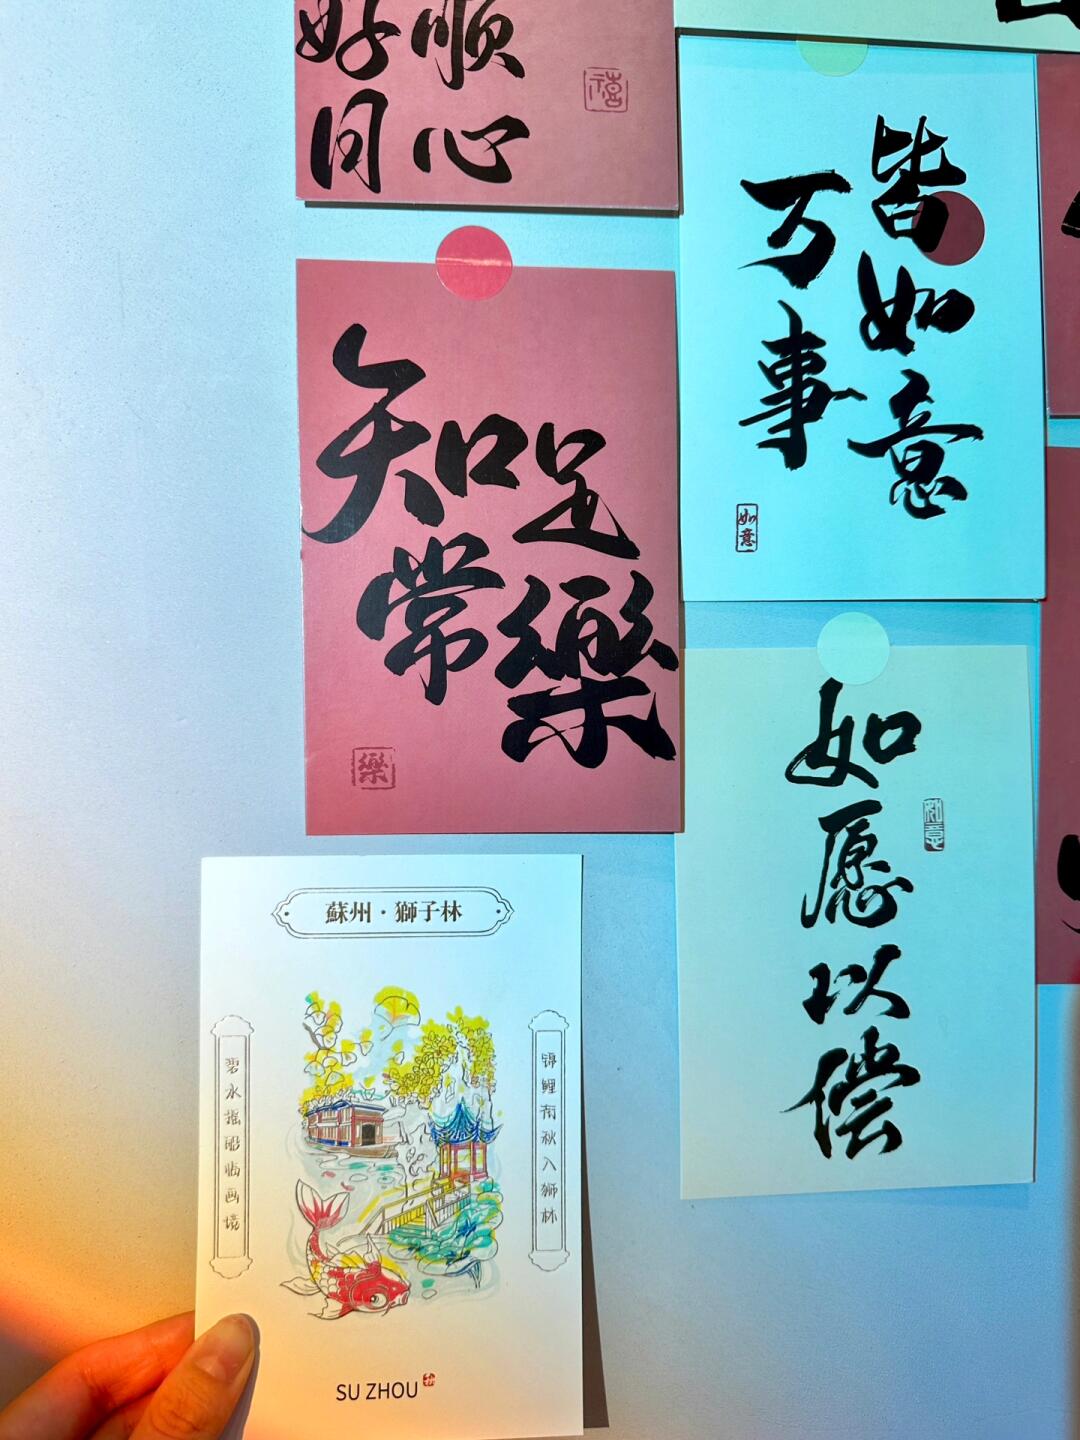 好顺
同心
禧
知足
常樂
樂
万事
皆如意
如意
如愿以偿
如意
蘇州·獅子林
锦鲤衔秋入狮林
碧水摇船临画境
SU ZHOU